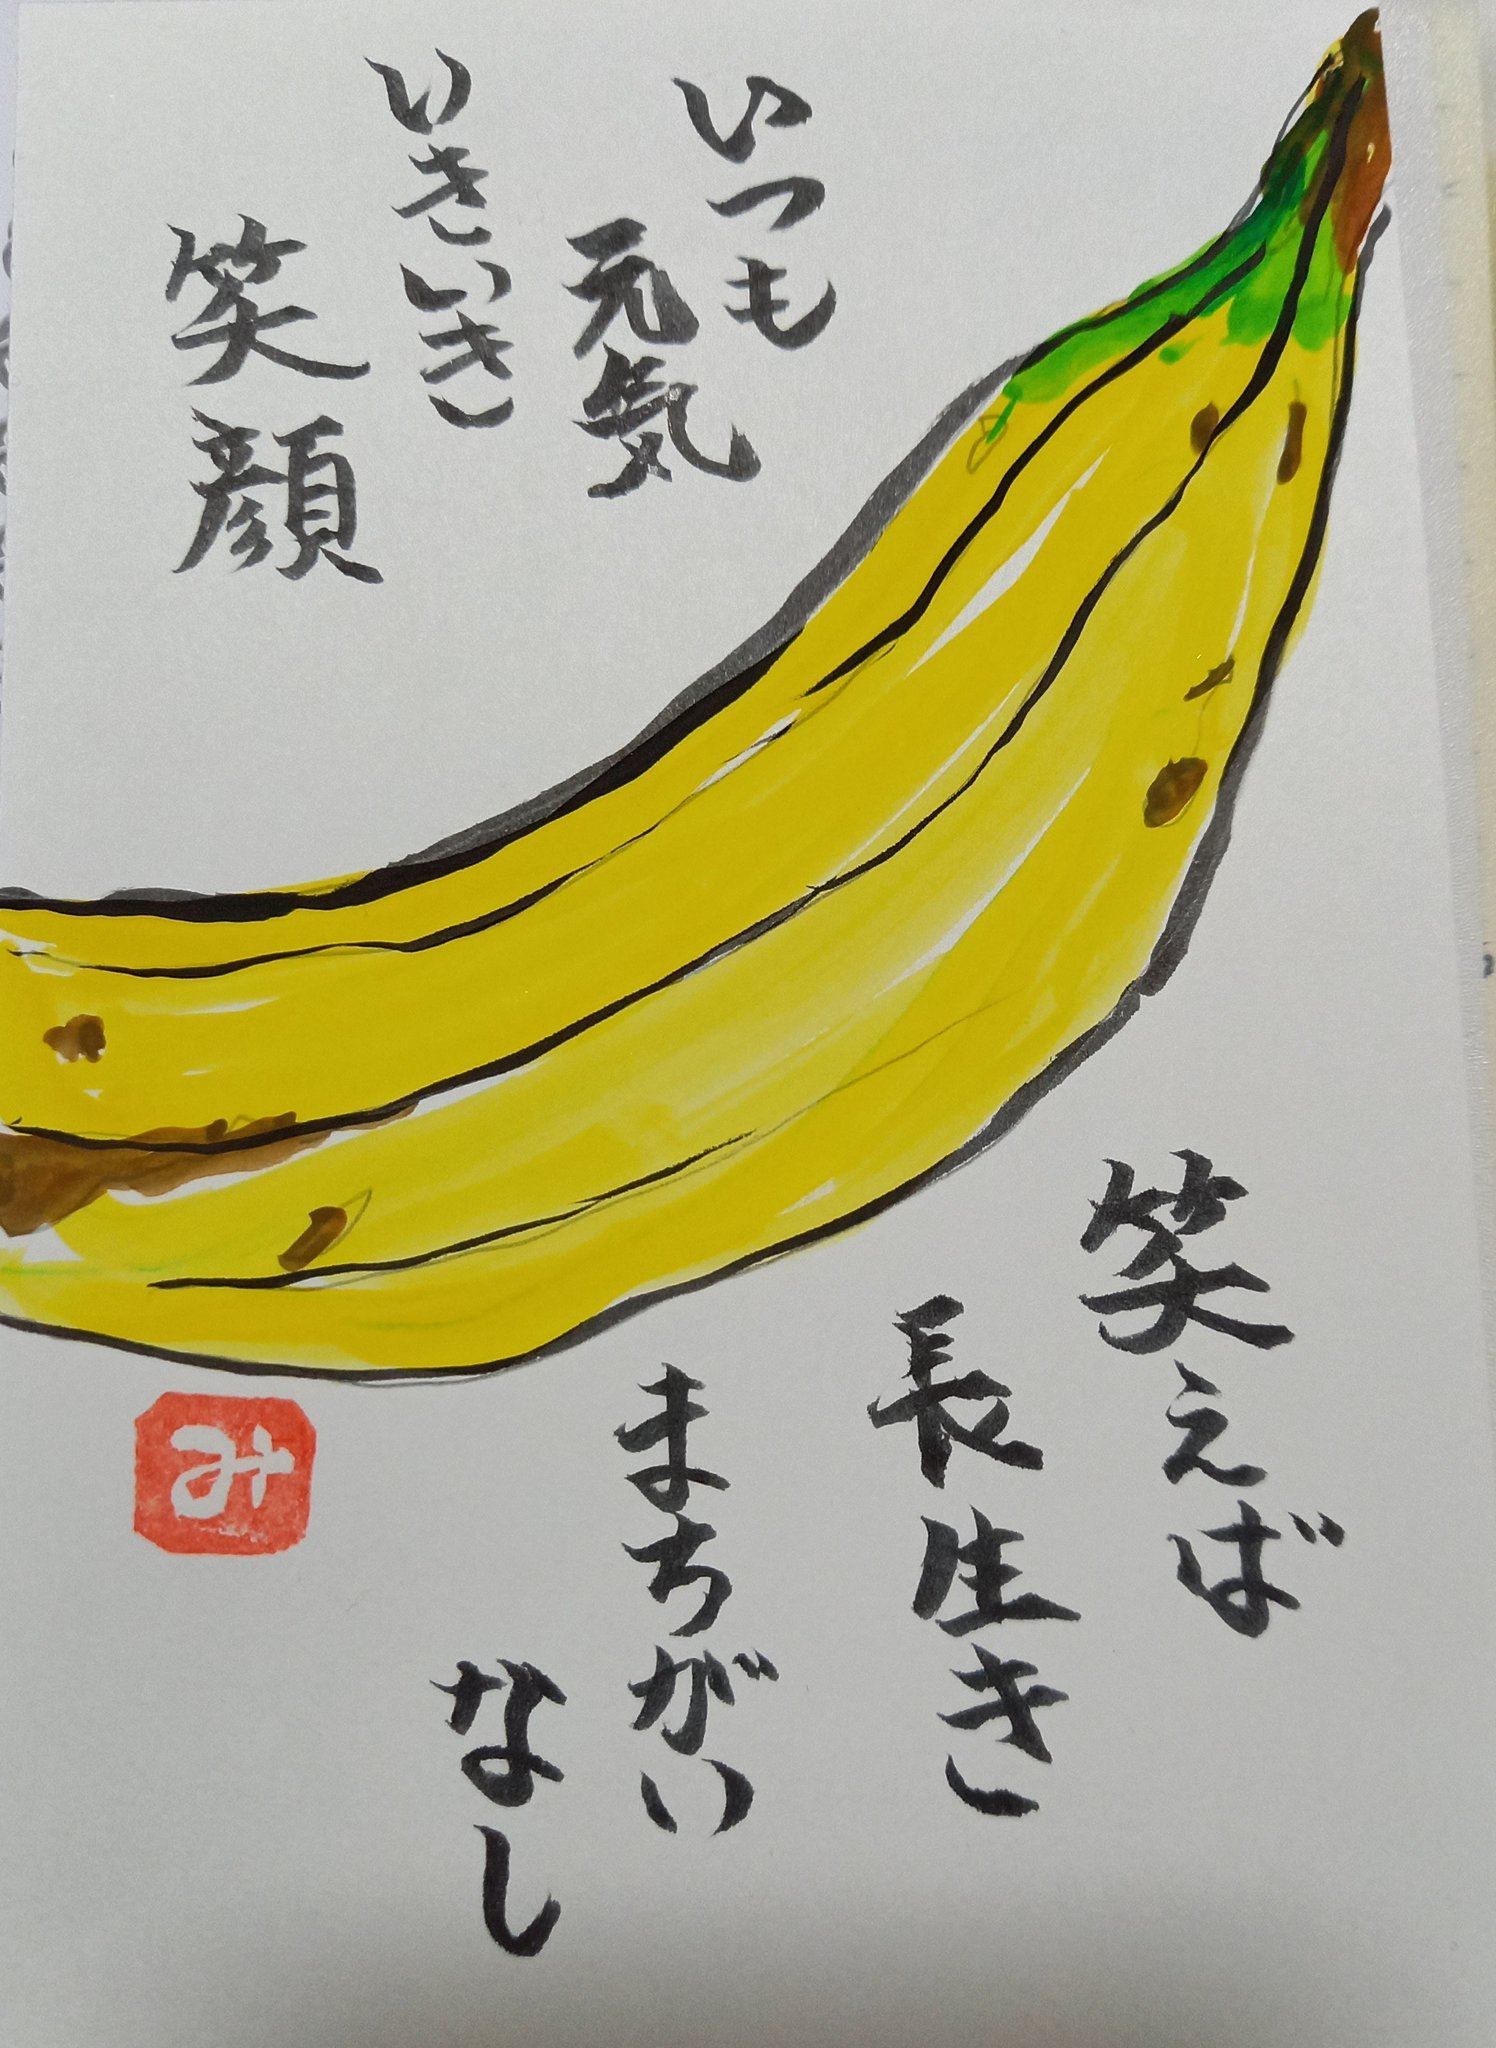 いつも
元気
いきいき
笑顔
笑えば
長生き
まちがい
なし
み